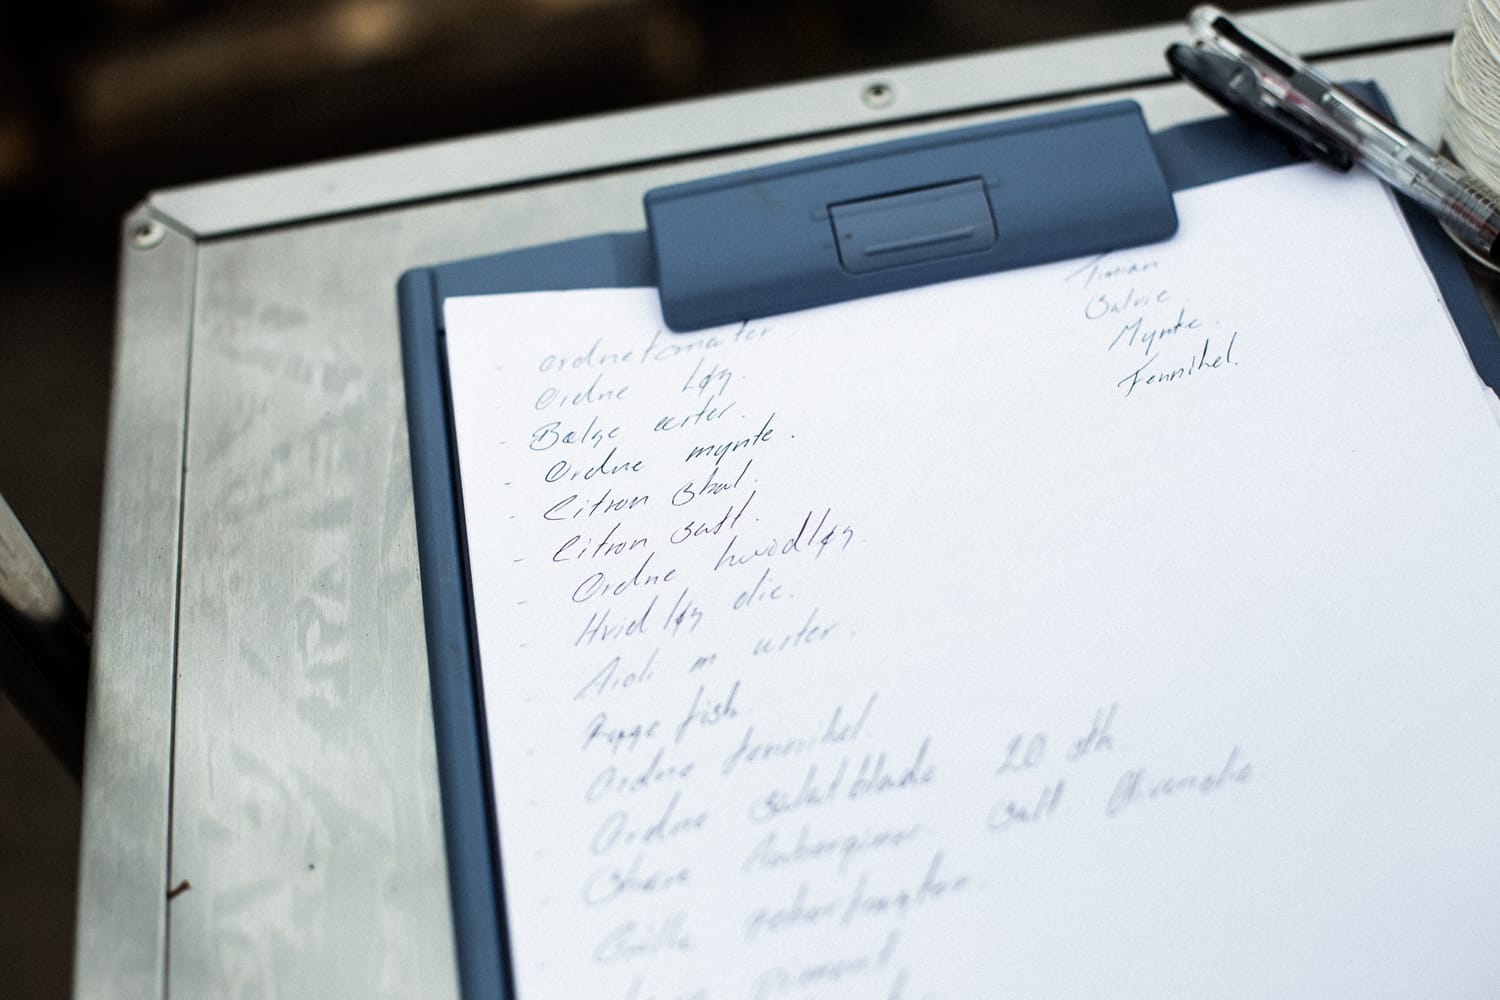 - Ordne tomater.
- Ordne løg.
- Bælge ærter.
- Ordne mynte.
- Citron skal.
- Citron saft.
- Ordne hvidløg.
- Hvidløg olie.
- Aioli m urter.
- fish.
- Ordne fennikel.
- Ordne salatblade 20 stk.
- Skære Auberginer. Salt Olivenolie
- Grille
piment
Timian.
Salvie.
Mynte.
Fennikel.